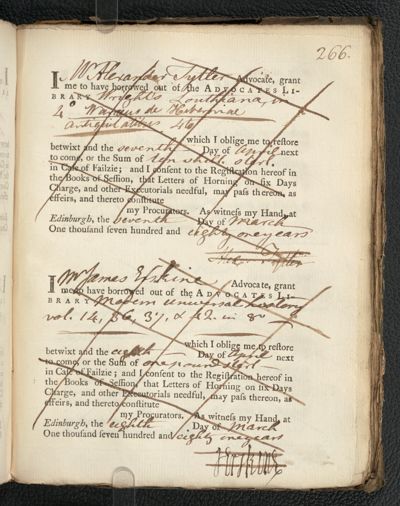 266.
I Mr Alexander Tytler Advocate, grant
me to have borrowed out of the ADVOCATES LI-
BRARY Wright's Louthiana, in
4o Waraeus de Hiberniae
antiquitatibus 4to
which I oblige me to restore
betwixt and the seventh Day of April next
to come, or the Sum of ten shill. sterl.
in Case of Failzie; and I consent to the Registration hereof in
the Books of Session, that Letters of Horning on six Days
Charge, and other Executorials needful, may pass thereon, as
effeirs, and thereto constitute
my Procurators. As witness my Hand, at
Edinburgh, the seventh Day of March
One thousand seven hundred and eighty one years
Alexr. Tytler
I Mr James Erskine Advocate, grant
me to have borrowed out of the ADVOCATES LI-
BRARY Modern universal history
vol. 14, 36, 37, & 42. in 8o
which I oblige me to restore
betwixt and the eighth Day of April next
to come, or the Sum of one pound sterl.
in Case of Failzie; and I consent to the Registration hereof in
the Books of Session, that Letters of Horning on six Days
Charge, and other Executorials needful, may pass thereon, as
effeirs, and thereto constitute
my Procurators. As witness my Hand, at
Edinburgh, the eighth Day of March
One thousand seven hundred and eighty one years
J Erskine